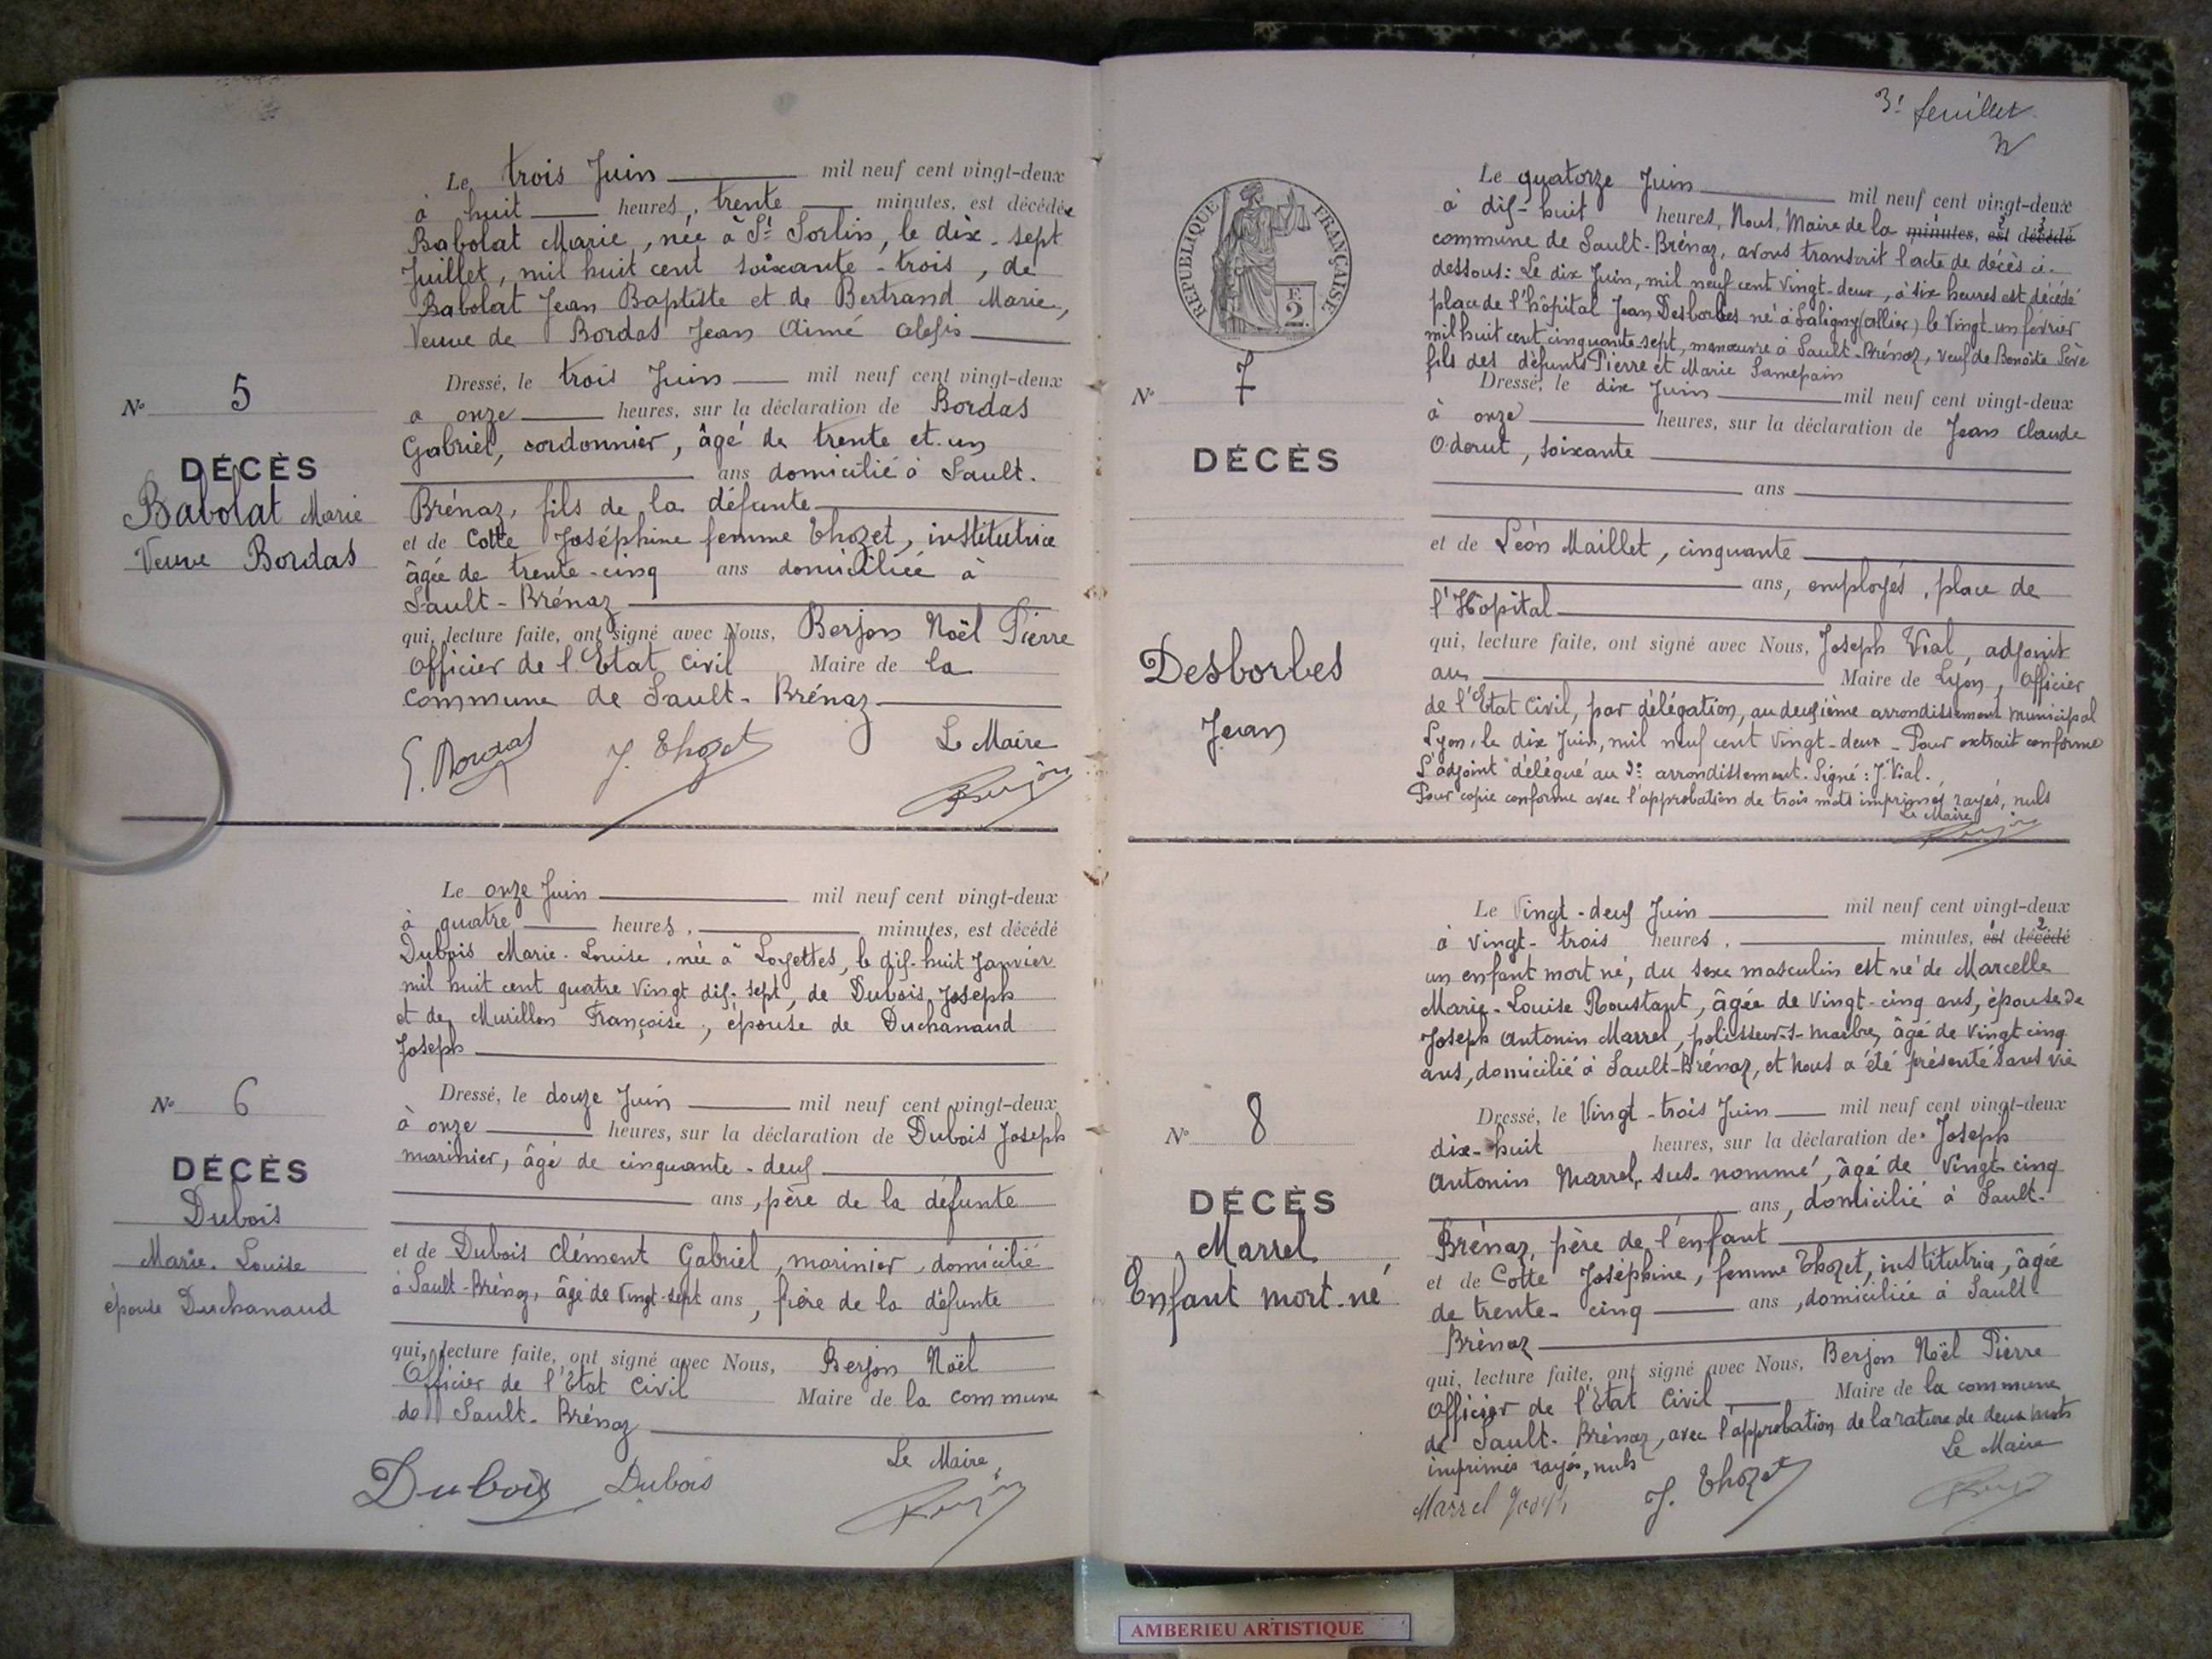 Le trois Juin mil neuf cent vingt-deux
à huit heures, trente minutes, est décédée
Babolat Marie, née à St Sorlin, le dix-sept
Juillet, mil huit cent soixante-trois, de
Babolat Jean Baptiste et de Bertrand Marie,
Veuve de Bordas Jean Aimé Alexis
Dressé, le trois Juin mil neuf cent vingt-deux
à onze heures, sur la déclaration de Bordas
Gabriel, cordonnier, âgé de trente et un
ans domicilié à Sault-
Brénaz, fils de la défunte
et de Cotte Joséphine femme Thozet, institutrice
âgée de trente-cinq ans domiciliée à
Sault-Brénaz
qui, lecture faite, ont signé avec Nous, Berjon Noël Pierre
Officier de l'Etat Civil Maire de la
commune de Sault-Brénaz
G. Bordas J. Thozet Le Maire
Berjon
No 5
DÉCÈS
Babolat Marie
Veuve Bordas
Le onze Juin mil neuf cent vingt-deux
à quatre heures, minutes, est décédé
Dubois Marie-Louise, née à Loyettes, le dix-huit Janvier
mil huit cent quatre vingt dix-sept, de Dubois Joseph
et de Murillon Françoise, épouse de Duchanaud
Joseph
Dressé, le douze Juin mil neuf cent vingt-deux
à onze heures, sur la déclaration de Dubois Joseph
marinier, âgé de cinquante-deux
ans, père de la défunte
et de Dubois Clément Gabriel, marinier, domicilié
à Sault-Brénaz, âgé de vingt-sept ans, frère de la défunte
qui, lecture faite, ont signé avec Nous, Berjon Noël
Officier de l'Etat Civil Maire de la commune
de Sault-Brénaz
Dubois Dubois Le Maire,
Berjon
No 6
DÉCÈS
Dubois
Marie-Louise
épouse Duchanaud
3e feuillet
RÉPUBLIQUE FRANÇAISE
F.
2.
Le quatorze Juin mil neuf cent vingt-deux
à dix-huit heures, Nous, Maire de la minutes, est décédé
commune de Sault-Brénaz, avons transcrit l'acte de décès ci-
dessous: Le dix Juin, mil neuf cent vingt-deux, à six heures est décédé
place de l'hôpital Jean Desborbes né à Saligny (Allier) le Vingt-un février
mil huit cent cinquante-sept, manœuvre à Sault-Brénaz, veuf de Benoîte Sève
fils des défunts Pierre et Marie Lamepain
Dressé, le dix Juin mil neuf cent vingt-deux
à onze heures, sur la déclaration de Jean Claude
Oderut, soixante
ans
et de Léon Maillet, cinquante
ans, employés, place de
l'Hôpital
qui, lecture faite, ont signé avec Nous, Joseph Vial, adjoint
au Maire de Lyon, Officier
de l'Etat Civil, par délégation, au deuxième arrondissement municipal
Lyon, le dix Juin, mil neuf cent vingt-deux - Pour extrait conforme
L'adjoint délégué au 2e arrondissement. Signé: J. Vial.
Pour copie conforme avec l'approbation de trois mots imprimés rayés, nuls
Le Maire
Berjon
No 7
DÉCÈS
Desborbes
Jean
Le Vingt-deux Juin mil neuf cent vingt-deux
à vingt-trois heures, minutes, est décédé
un enfant mort né, du sexe masculin est né de Marcelle
Marie-Louise Roustant, âgée de vingt-cinq ans, épouse de
Joseph Antonin Marrel, polisseur-s-marbre, âgé de vingt cinq
ans, domicilié à Sault-Brénaz, et nous a été présenté sans vie
Dressé, le Vingt-trois Juin mil neuf cent vingt-deux
dix-huit heures, sur la déclaration de Joseph
Antonin Marrel, sus-nommé, âgé de vingt-cinq
ans, domicilié à Sault-
Brénaz, père de l'enfant
et de Cotte Joséphine, femme Thozet, institutrice, âgée
de trente-cinq ans, domiciliée à Sault-
Brénaz
qui, lecture faite, ont signé avec Nous, Berjon Noël Pierre
Officier de l'Etat Civil Maire de la commune
de Sault-Brénaz, avec l'approbation de la rature de deux mots
imprimés rayés, nuls Le Maire
Marrel Joseph J. Thozet
No 8
DÉCÈS
Marrel
Enfant mort-né
AMBERIEU ARTISTIQUE